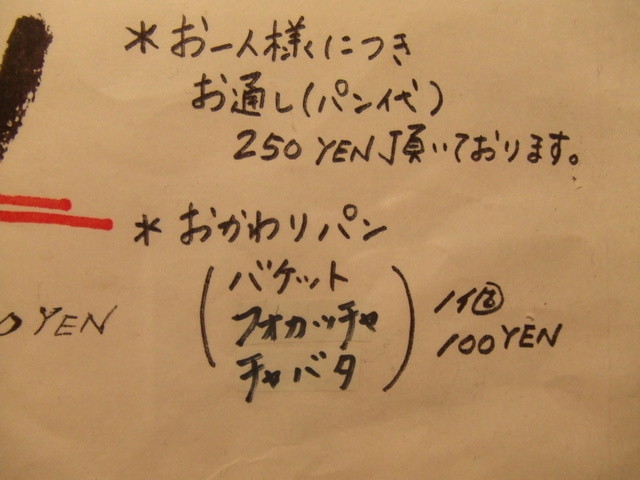 *お一人様につき
お通し(パン代)
250 YEN頂いております。
*おかわりパン
(バケット
フォカッチャ
チャバタ)
1個
100 YEN
0 YEN